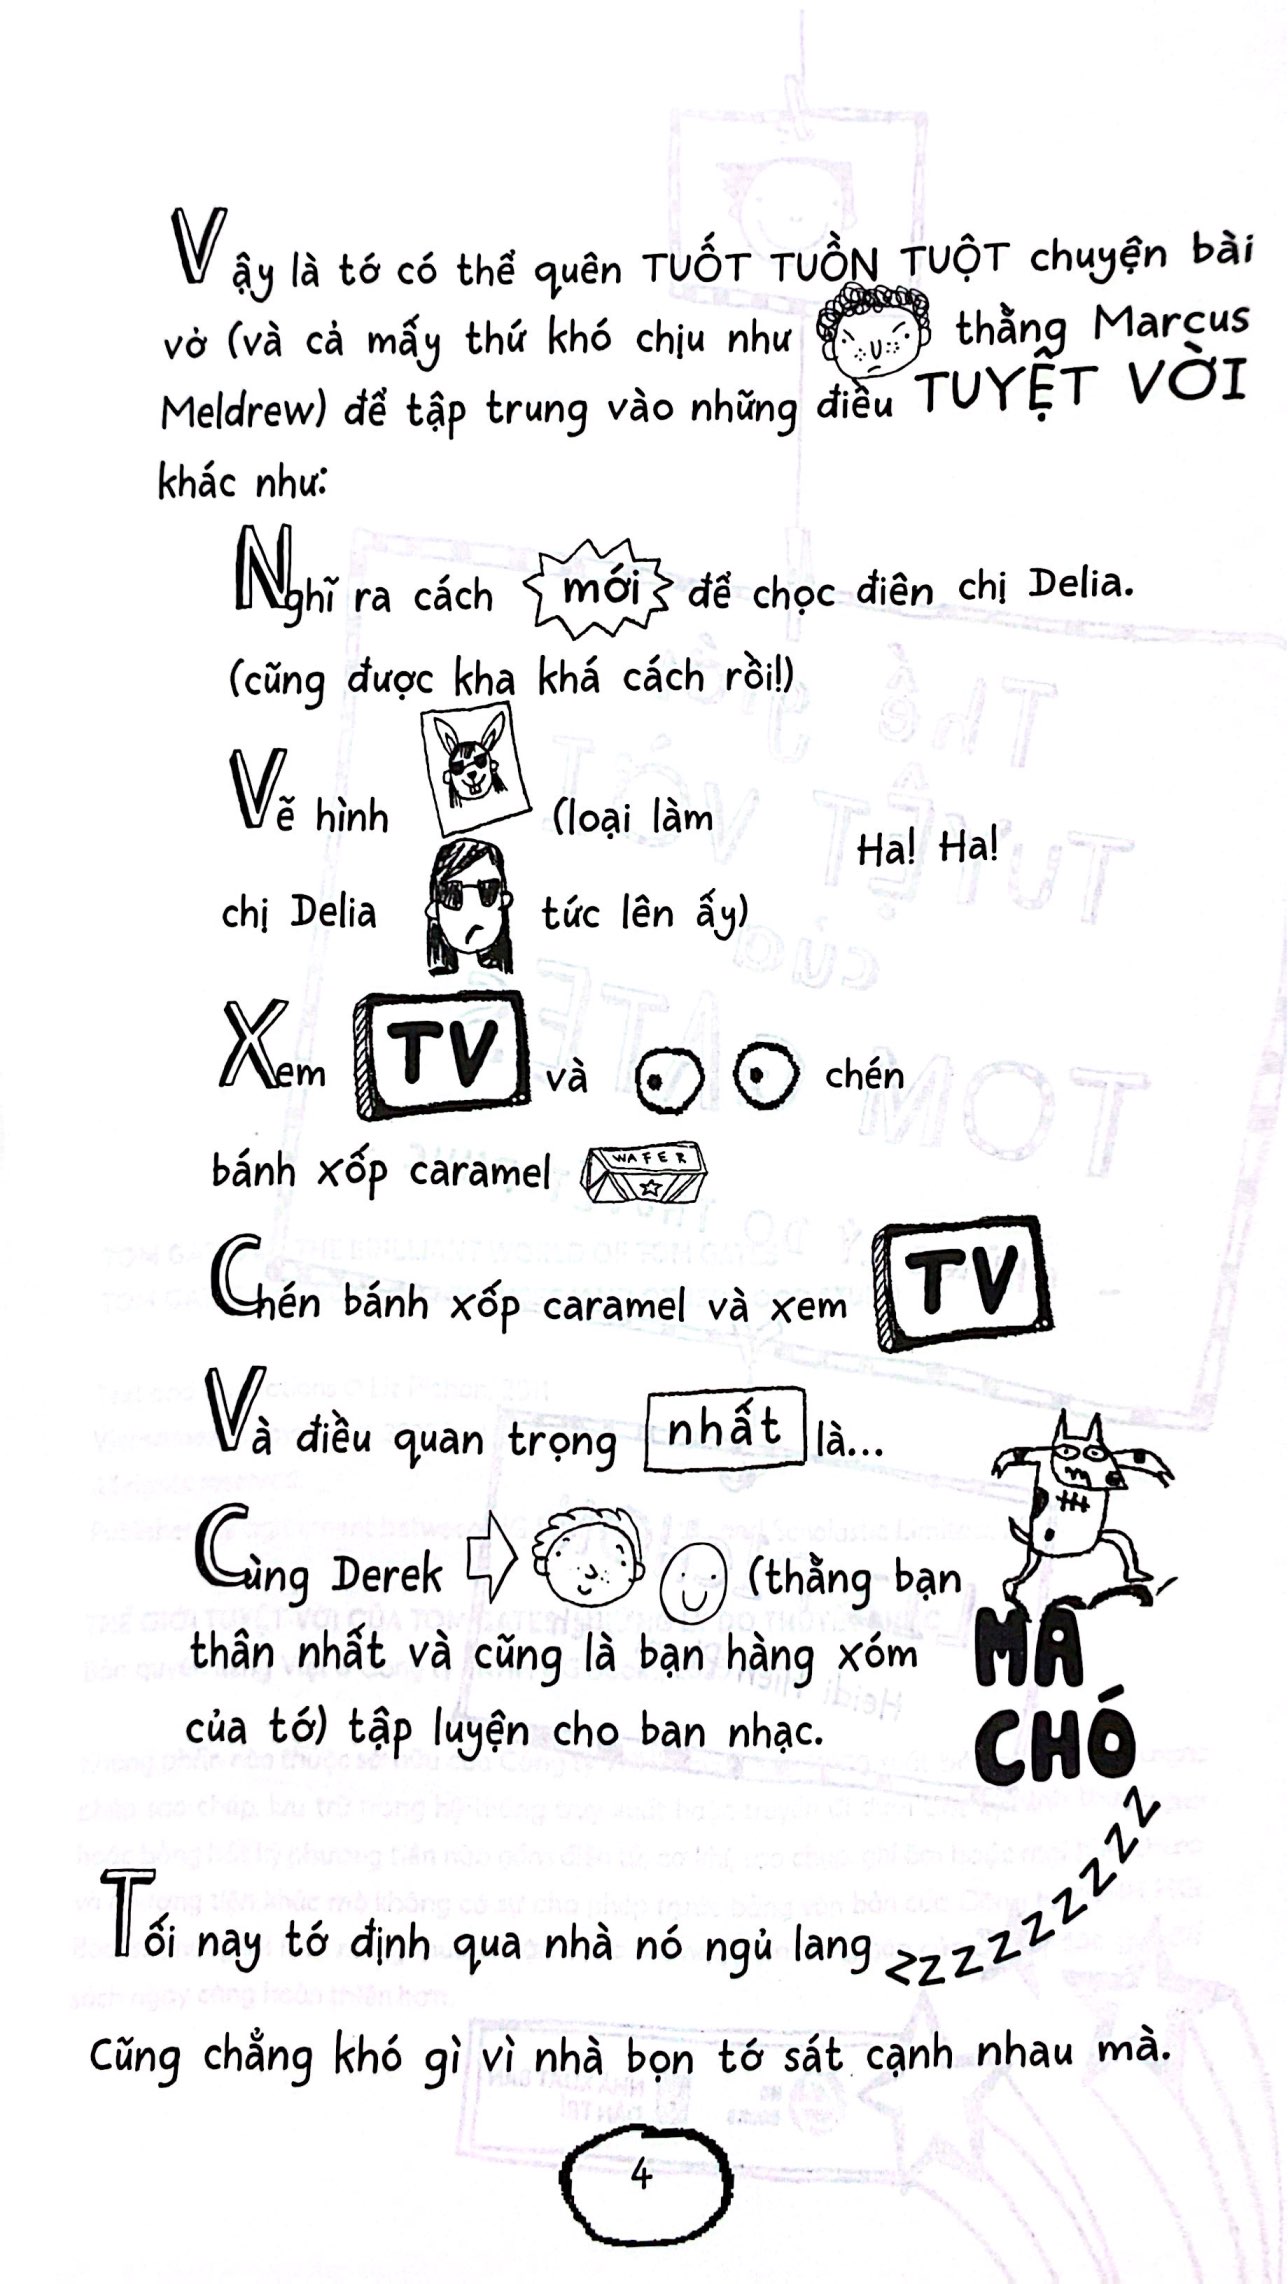 Vậy là tớ có thể quên TUỐT TUỒN TUỘT chuyện bài
vở (và cả mấy thứ khó chịu như thằng Marcus
Meldrew) để tập trung vào những điều TUYỆT VỜI
khác như:
Nghĩ ra cách mới để chọc điên chị Delia.
(cũng được kha khá cách rồi!)
Vẽ hình (loại làm
Ha! Ha!
chị Delia tức lên ấy)
Xem TV và chén
bánh xốp caramel WAFER
Chén bánh xốp caramel và xem TV
Và điều quan trọng nhất là...
Cùng Derek (thằng bạn
thân nhất và cũng là bạn hàng xóm
của tớ) tập luyện cho ban nhạc.
MA
CHÓ
Tối nay tớ định qua nhà nó ngủ lang zzzzzzzzz
Cũng chẳng khó gì vì nhà bọn tớ sát cạnh nhau mà.
4